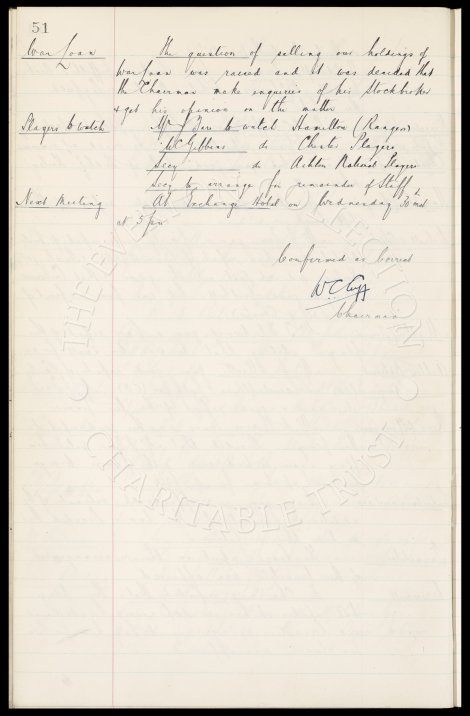 51
War Loan The question of selling our holdings of
War Loan was raised and it was decided that
the Chairman make enquiries of his Stockbroker
& get his opinion on the matter
Players to watch Mr J to watch Hamilton (Rangers)
" WC Gibbins do Chester Players
Secy do Ashton National Players
Secy to arrange for remainder of Staff
Next Meeting At Exchange Hotel on Wednesday 30th inst
at 5 pm
Confirmed as Correct
W.C. Cuff
Chairman
THE EVERTON COLLECTION
CHARITABLE TRUST